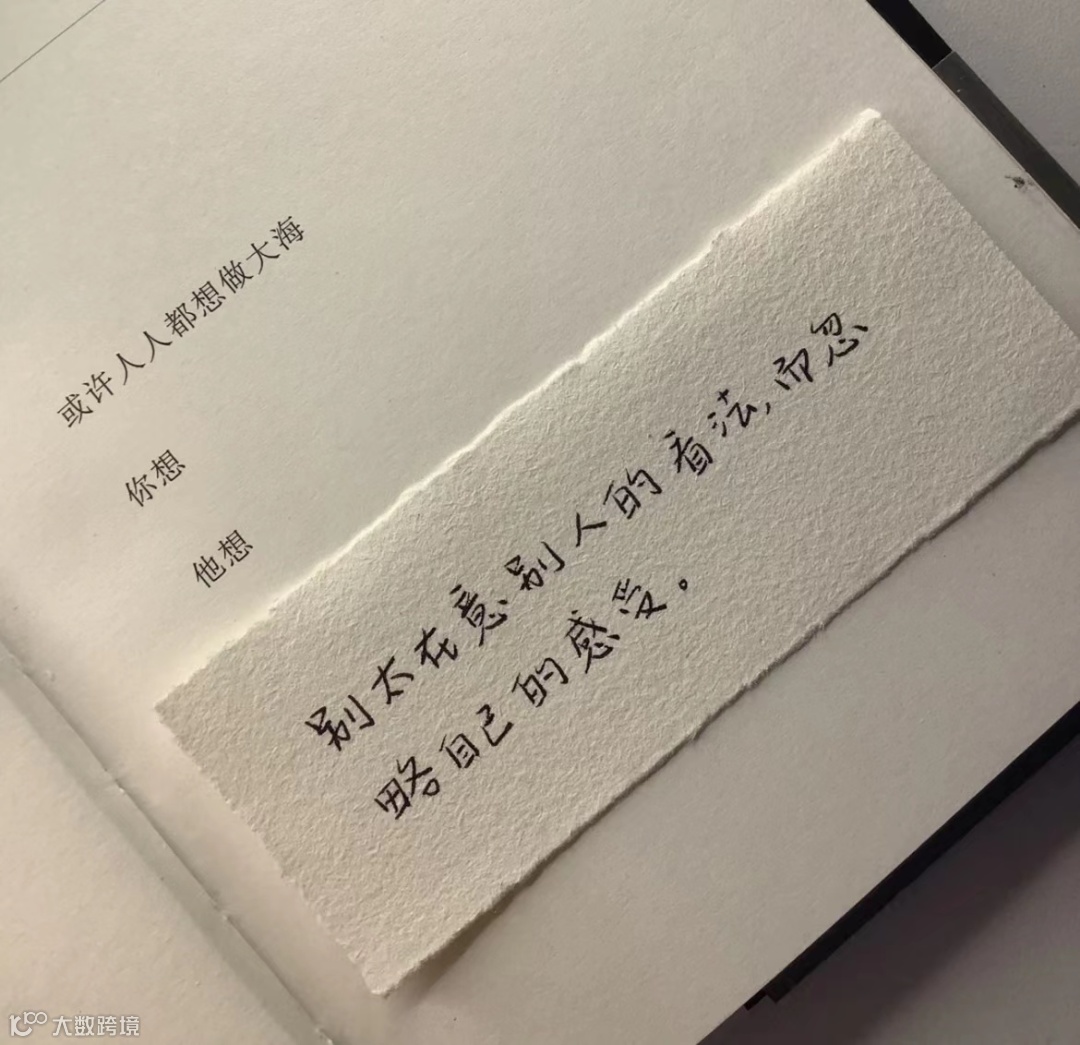 或许人人都想做大海
你想
他想
别太在意别人的看法,而忽
略自己的感受。
大数跨境